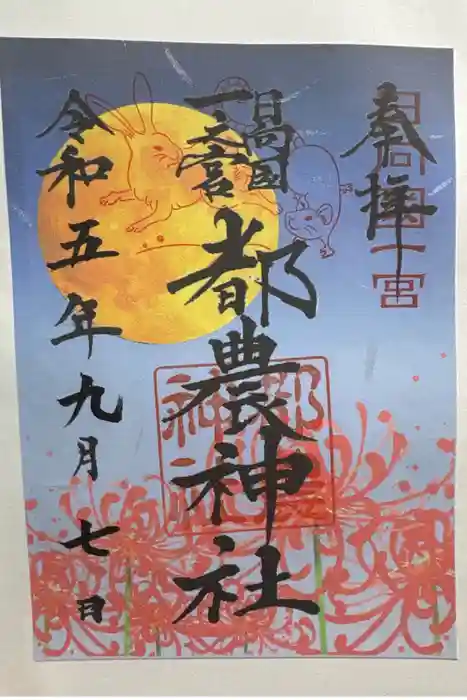 奉拝
日向国一宮
日向国
一之宮
都農神社
都農神社
令和五年九月七日